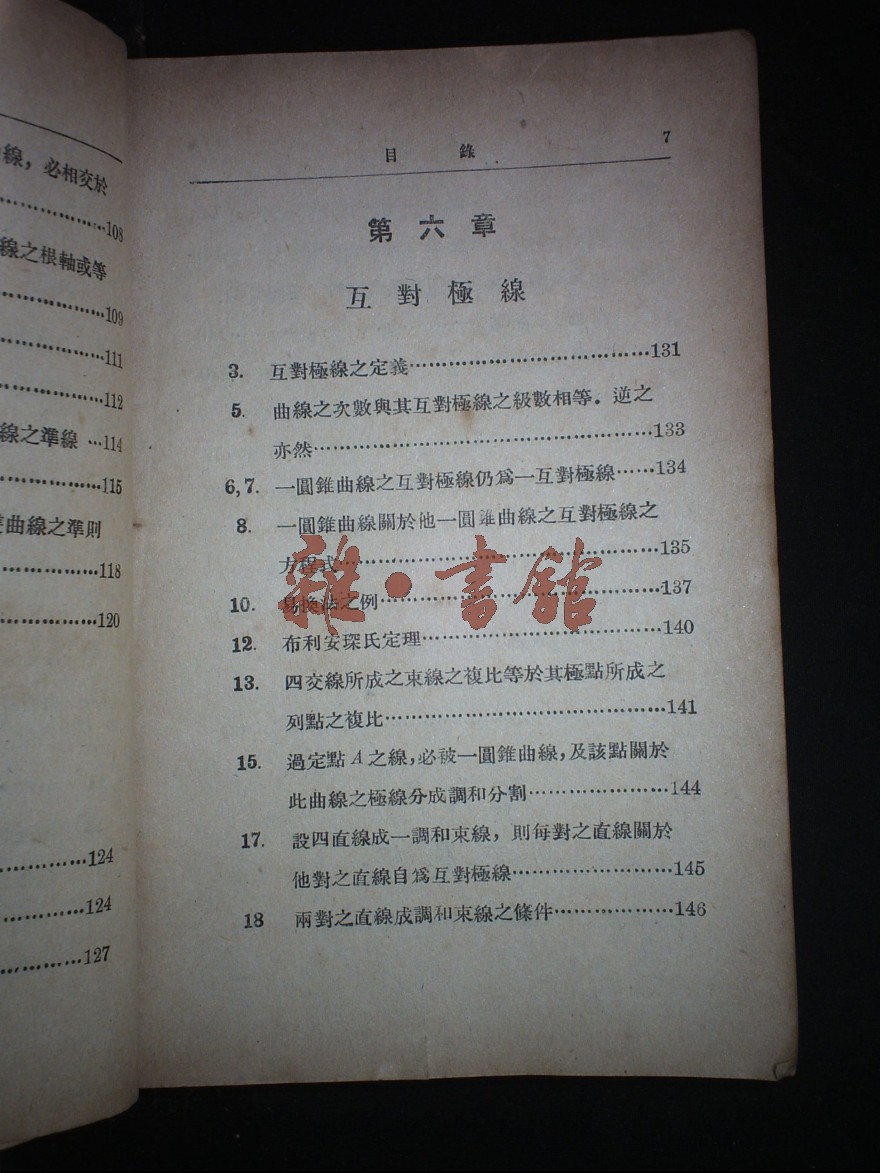 線，必相交於
108
線之根軸或等
109
111
112
線之準線 …114
115
曲線之準則
118
120
124
124
127
目 錄 7
第 六 章
互 對 極 線
3. 互對極線之定義……………………………131
5. 曲線之次數與其互對極線之級數相等。逆之
亦然……………………………………133
6,7. 一圓錐曲線之互對極線仍爲一互對極線……134
8. 一圓錐曲線關於他一圓錐曲線之互對極線之
方程式……………………………………135
10. 易換法之例……………………………………137
12. 布利安琛氏定理……………………………140
13. 四交線所成之束線之複比等於其極點所成之
列點之複比……………………………………141
15. 過定點A之線，必被一圓錐曲線，及該點關於
此曲線之極線分成調和分割…………………144
17. 設四直線成一調和束線，則每對之直線關於
他對之直線自爲互對極線……………………145
18 兩對之直線成調和束線之條件………………146
雜·書館